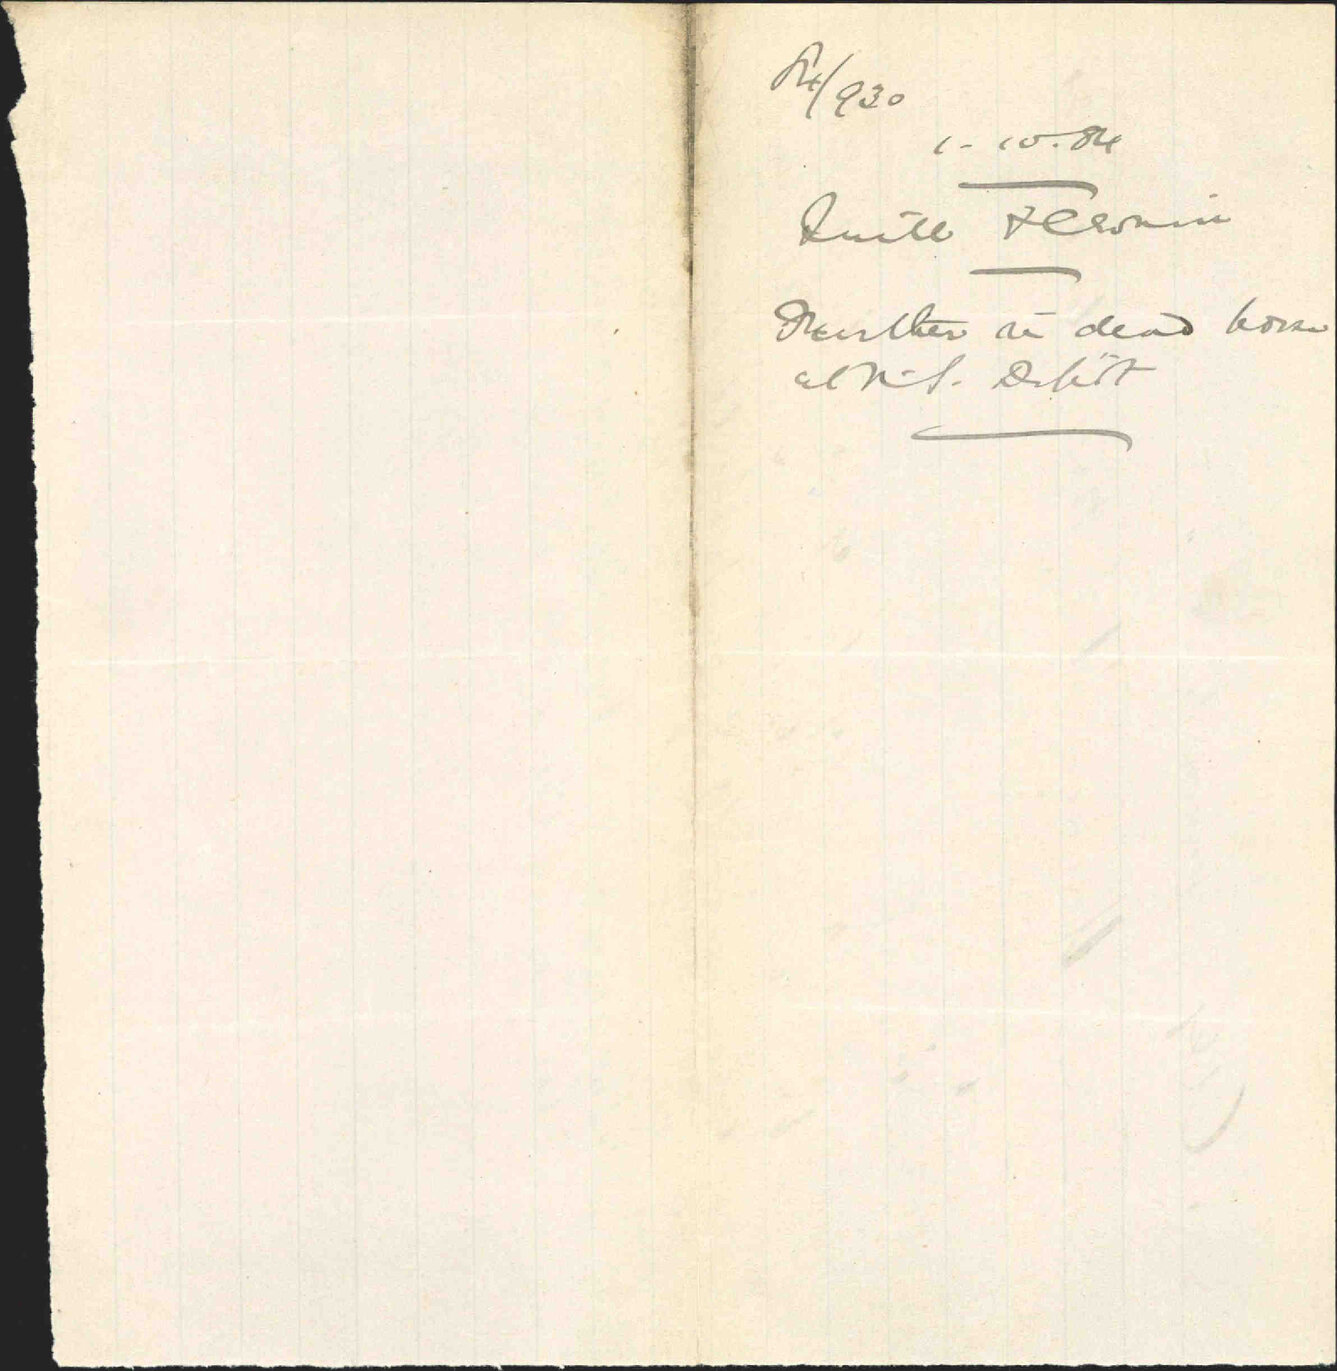 84/930
1-10.84
Smith & Cronin
Further re dead horse
at N.S. Depôt